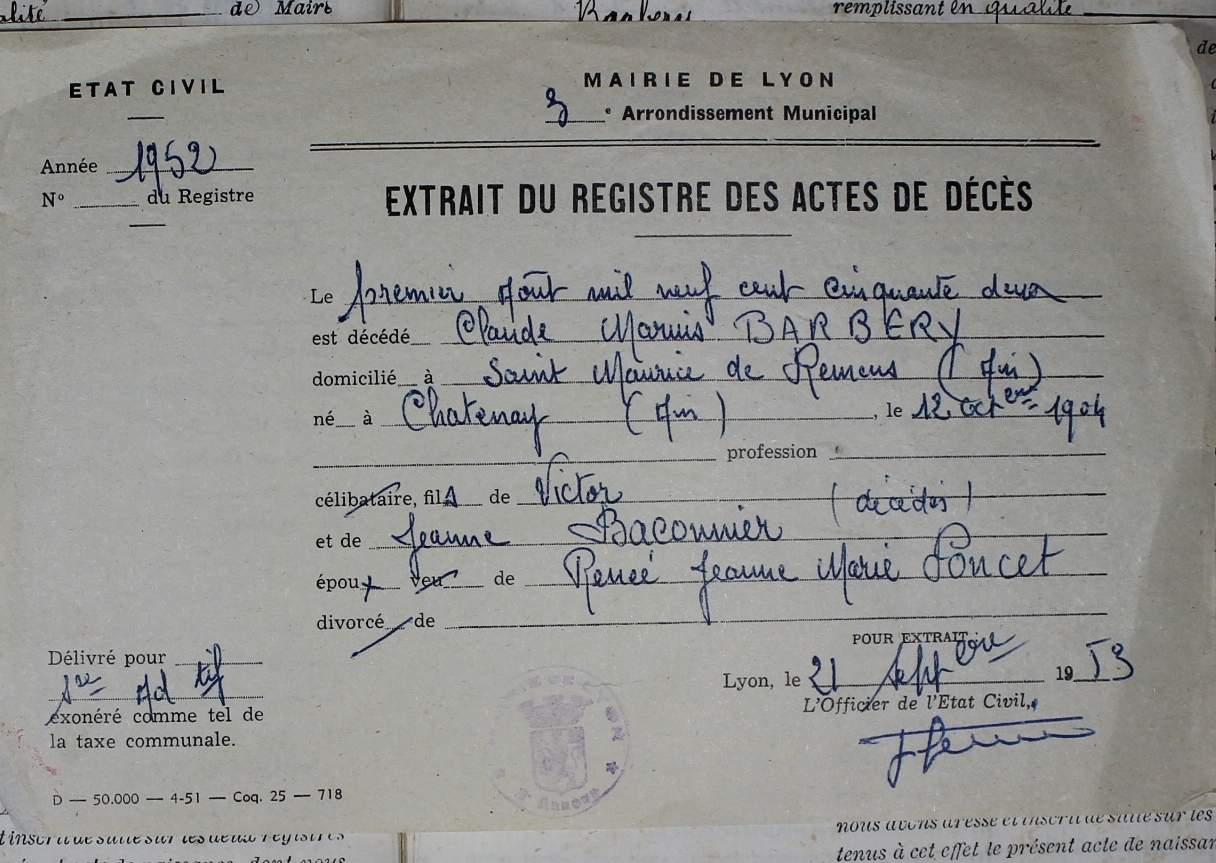 alité de Mairie
remplissant en qualité
de
ETAT CIVIL
MAIRIE DE LYON
3 e Arrondissement Municipal
Année 1952
No du Registre
EXTRAIT DU REGISTRE DES ACTES DE DÉCÈS
Le premier Aout mil neuf cent cinquante deux
est décédé Claude Marius BARBERY
domicilié à Saint Maurice de Remens (Ain)
né à Chatenay (Ain), le 12 Octobre 1904
profession
célibataire, fils de Victor
(décédés)
et de Jeanne Baconnier
époux veuf de Renée Jeanne Marie Poncet
divorcé de
POUR EXTRAIT
Délivré pour
Lyon, le 21 Septembre 1953
L'Officier de l'Etat Civil,
1re Ad tif
exonéré comme tel de
la taxe communale.
D — 50.000 — 4-51 — Coq. 25 — 718
nous avons dressé et inscrit de suite sur les
tenus à cet effet le présent acte de naissan